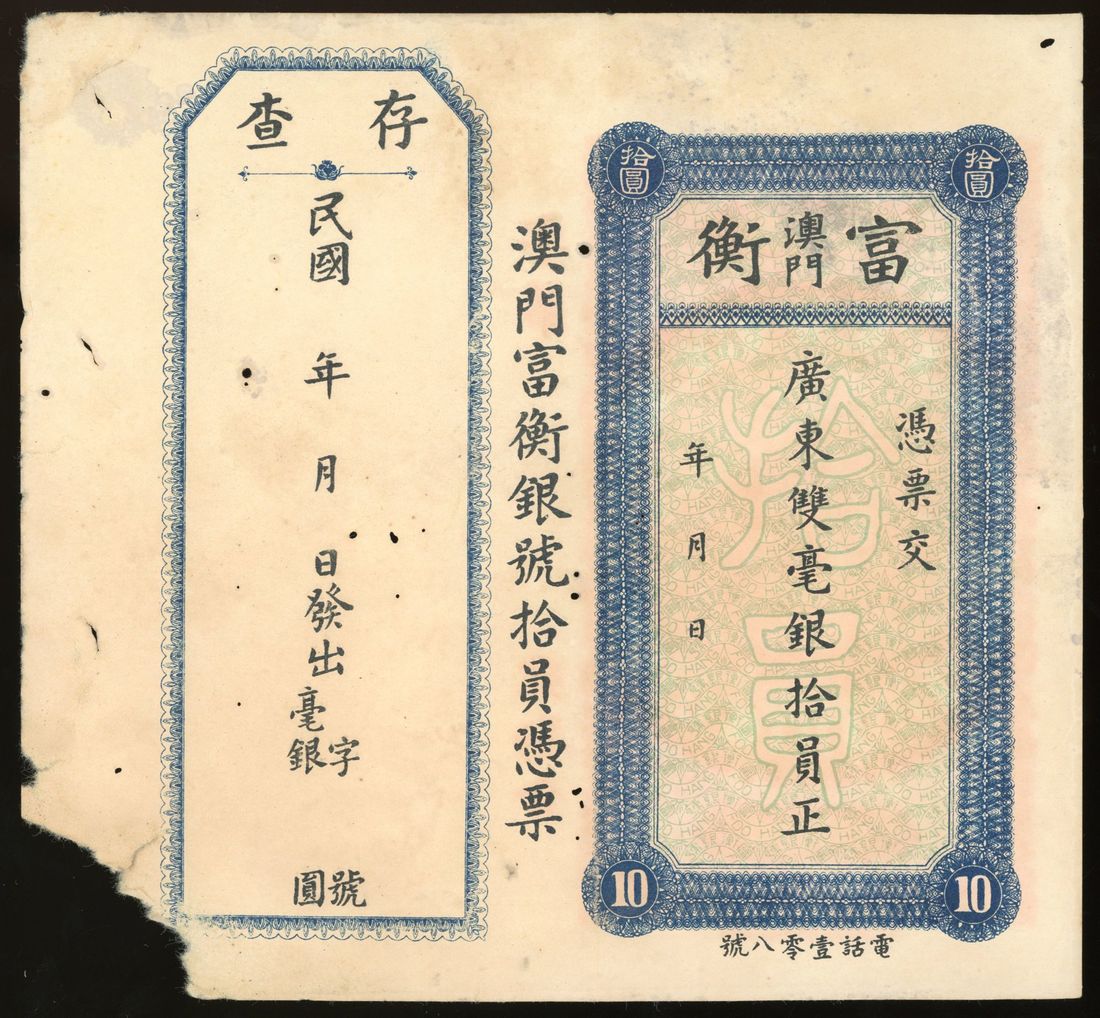 拾圓
拾圓
富澳門衡
憑票交
廣東雙毫銀拾員正
年月日
10
10
電話壹零八號
澳門富衡銀號拾員憑票
存查
民國 年 月 日發出
字 號
毫銀 圓